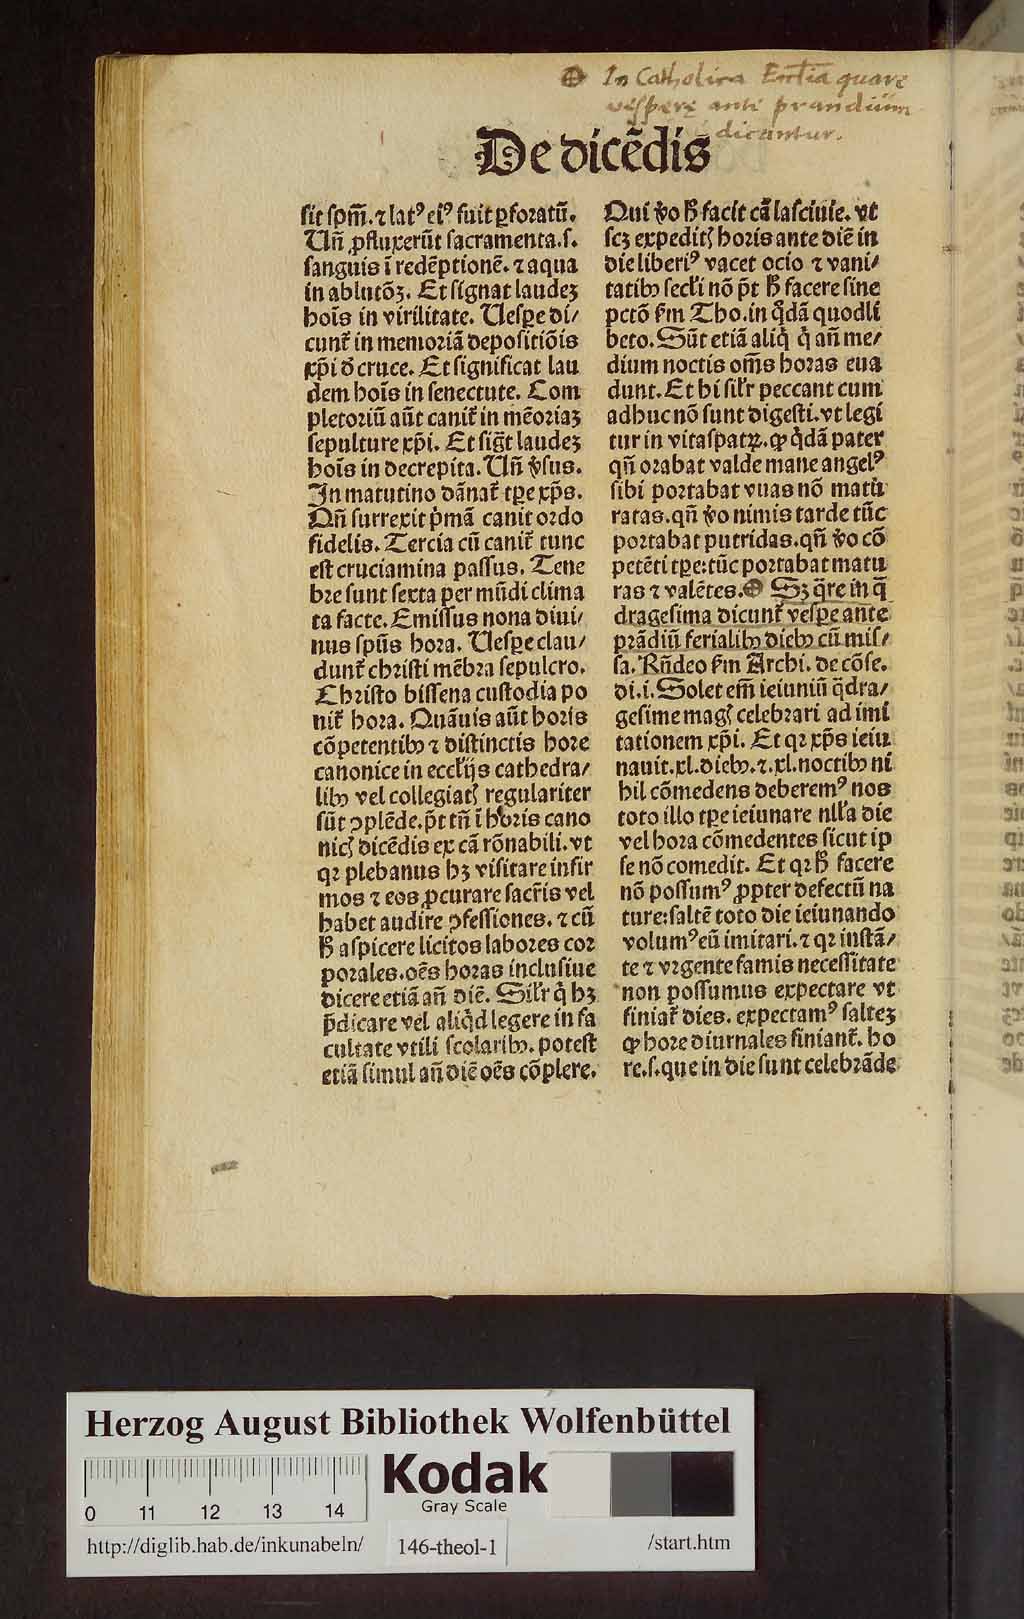 In Catholica Eccl̃ia quare
vesperę ante prandium
dicantur.
De dicẽdis
sit spm̃. ⁊ latꝰ eiꝰ fuit ꝑforatũ.
Un̄ ꝓfluxerũt sacramenta.s.
sanguis ĩ redẽptionẽ. ⁊ aqua
in ablutõꝫ. Et signat laudeꝫ
hoĩs in virilitate. Uespe di/
cunt̃ in memoriã depositiõis
xp̃i ð cruce. Et significat lau
dem hoĩs in senectute. Com
pletoriũ aũt canit̃ in mẽoriaꝫ
sepulture xp̃i. Et sig̃t laudeꝫ
hoĩs in decrepita. Un̄ v̾sus.
In matutino dãnat̃ tꝑe xp̃s.
Qñ surrexit p̾mã canit ordo
fidelis. Tercia cũ canit̃ tunc
est cruciamina passus. Tene
bre sunt sexta per mũdi clima
ta facte. Emissus nona diui/
nus spũs hora. Uesꝑe clau/
dunt̃ christi mẽbra sepulcro.
Christo bissena custodia po
nit̃ hora. Quãuis aũt horis
cõpetentibꝰ ⁊ distinctis hore
canonice in eccl̃ijs cathedra/
libꝰ vel collegiatꝭ regulariter
sũt ꝯplẽde. p̃t tñ ĩ horis cano
nicꝭ dicẽdis ex cã rõnabili. vt
qꝛ plebanus hꝫ visitare infir
mos ⁊ eos ꝓcurare sacr̃is vel
habet audire ꝯfessiones. ⁊ cũ
ꝧ aspicere licitos labores cor
porales. oẽs horas inclusiue
dicere etiã añ diẽ. Sil̃r q̾ hꝫ
p̃dicare vel aliq̾d legere in fa
cultate vtili scolaribꝰ. potest
etiã simul añ diẽ oẽs cõplere.
Qui v̾o ꝧ facit cã lasciuie. vt
scꝫ expeditꝭ horis ante diẽ in
die liberiꝰ vacet ocio ⁊ vani/
tatibꝰ secl̃i nõ p̃t ꝧ facere sine
pctõ ẜm Tho. in q̾dã quodli
beto. Sũt etiã aliq̾ q̾ añ me/
dium noctis om̃s horas eua
dunt. Et hi sil̃r peccant cum
adhuc nõ sunt digesti. vt legi
tur in vitaspatꝝ. ꝙ q̾dã pater
qñ orabat valde mane angelꝰ
sibi portabat vuas nõ matu
ratas. qñ v̾o nimis tarde tũc
portabat putridas. qñ v̾o cõ
petẽti tꝑe: tũc portabat matu
ras ⁊ valẽtes. Sꝫ q̃re in q̃
dragesima dicunt̃ vesꝑe ante
prãdiũ ferialibꝰ diebꝰ cũ mis/
sa. Rñdeo ẜm Archi. de cõse.
di.i. Solet em̃ ieiuniũ q̃dra/
gesime magꝭ celebrari ad imi
tationem xp̃i. Et qꝛ xp̃s ieiu
nauit.xl.diebꝰ.⁊.xl.noctibꝰ ni
hil cõmedens deberemꝰ nos
toto illo tꝑe ieiunare nll̃a die
vel hora cõmedentes sicut ip
se nõ comedit. Et qꝛ ꝧ facere
nõ possumꝰ ꝓpter defectũ na
ture: saltẽ toto die ieiunando
volumꝰ eũ imitari. ⁊ qꝛ instã/
te ⁊ vrgente famis necessitate
non possumus expectare vt
finiat̃ dies. expectamꝰ salteꝫ
ꝙ hore diurnales finiant̃. ho
re.s.que in die sunt celebrãde
Herzog August Bibliothek Wolfenbüttel
Kodak
Gray Scale
0 11 12 13 14
http://diglib.hab.de/inkunabeln/ 146-theol-1 /start.htm